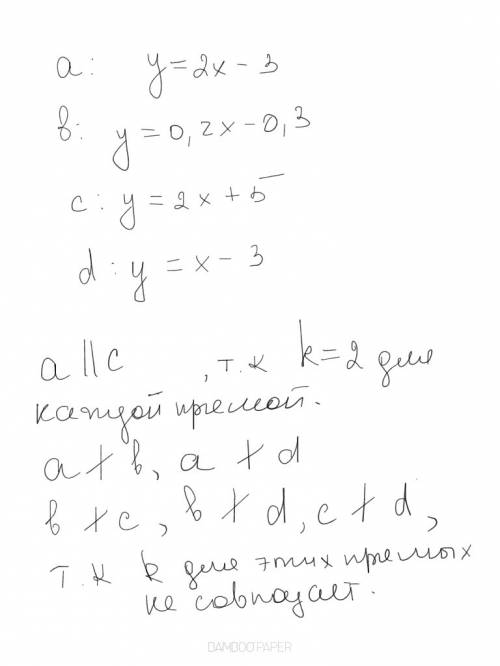 a: y=2x-3
b: y=0,2x-0,3
c: y=2x+5
d: y=x-3
a∥c , т.к k=2 для
каждой прямой.
a∦b, a∦d
b∦c, b∦d, c∦d,
т.к k для этих прямых
не совпадает.
BAMBOOPAPER